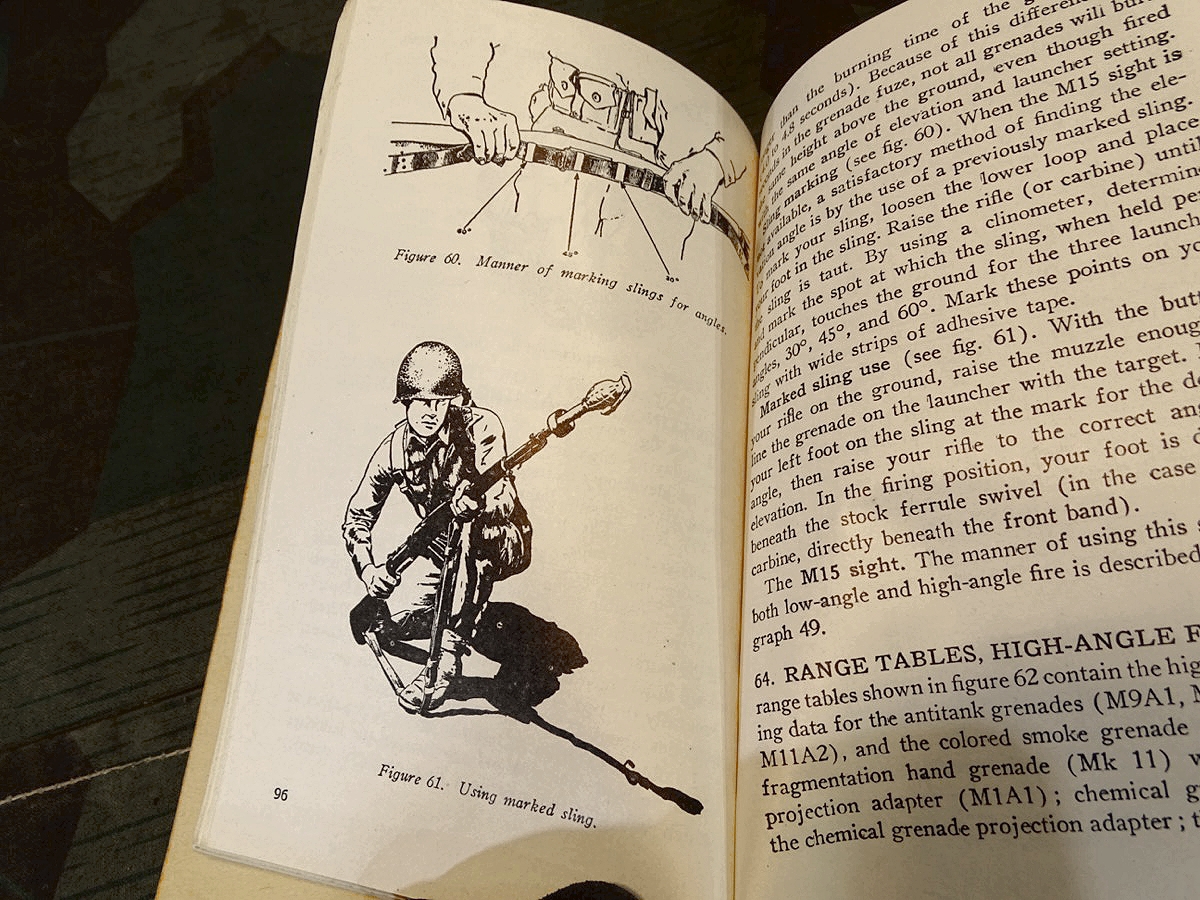 60°
45°
30°
Figure 60. Manner of marking slings for angles.
Figure 61. Using marked sling.
96
than the burning time of the
to 4.8 seconds). Because of this differen
in the grenade fuze, not all grenades will bur
same height above the ground, even though fired
the same angle of elevation and launcher setting.
Sling marking (see fig. 60). When the M15 sight is
available, a satisfactory method of finding the ele-
angle is by the use of a previously marked sling.
mark your sling, loosen the lower loop and place
your foot in the sling. Raise the rifle (or carbine) until
sling is taut. By using a clinometer, determin
and mark the spot at which the sling, when held per
pendicular, touches the ground for the three launch
angles, 30°, 45°, and 60°. Mark these points on yo
sling with wide strips of adhesive tape.
Marked sling use (see fig. 61). With the butt
your rifle on the ground, raise the muzzle enoug
line the grenade on the launcher with the target.
your left foot on the sling at the mark for the de
angle, then raise your rifle to the correct an
elevation. In the firing position, your foot is d
beneath the stock ferrule swivel (in the case
carbine, directly beneath the front band).
The M15 sight. The manner of using this s
both low-angle and high-angle fire is described
graph 49.
64. RANGE TABLES, HIGH-ANGLE F
range tables shown in figure 62 contain the hig
ing data for the antitank grenades (M9A1, M
M11A2), and the colored smoke grenade
fragmentation hand grenade (Mk 11) w
projection adapter (M1A1); chemical g
the chemical grenade projection adapter; t